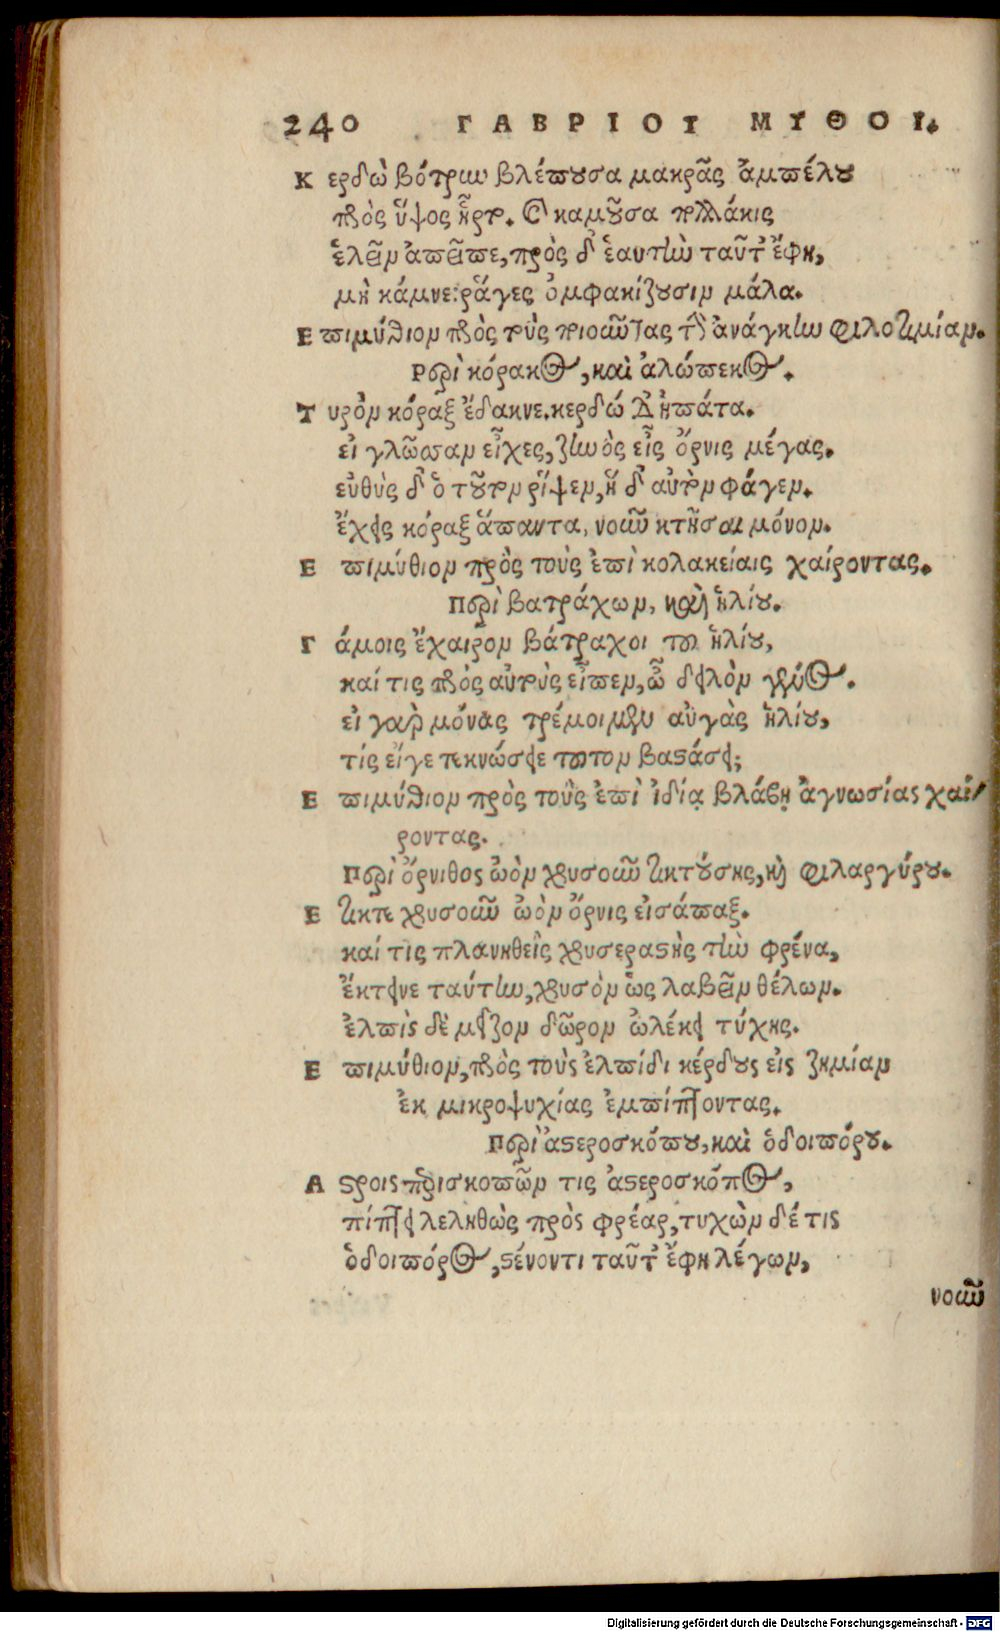 240 ΓΑΒΡΙΟΥ ΜΥΘΟΙ.
Κερδὼ βότρυν βλέπουσα μακρᾶς ἀμπέλου
πρὸς ὕψος ἦρτο. καὶ καμοῦσα πολλάκις
ἑλεῖν ἀπεῖπε, πρὸς δ' ἑαυτὴν ταῦτ' ἔφη,
μὴ κάμνε: ῥᾶγες ὀμφακίζουσιν μάλα.
Επιμύθιον πρὸς τοὺς ποιοῦντας τὴν ἀνάγκην φιλοτιμίαν.
Περὶ κόρακος, καὶ ἀλώπεκος.
Τυρὸν κόραξ ἔδακνε. κερδώ δ' ἠπάτα.
εἰ γλῶσσαν εἶχες, ζηνὸς εἶς ὄρνις μέγας.
εὐθὺς δ' ὁ τοῦτον ῥίψεν, ἡ δ' αὐτὸν φάγεν.
ἔχεις κόραξ ἅπαντα, νοῦν κτῆσαι μόνον.
Επιμύθιον πρὸς τοὺς ἐπὶ κολακείαις χαίροντας.
Περὶ βατράχων, καὶ ἡλίου.
Γάμοις ἔχαιρον βάτραχοι τοῦ ἡλίου,
καί τις πρὸς αὐτοὺς εἶπεν, ὦ δειλὸν γένος.
εἰ γὰρ μόνας τρέμοιμεν αὐγὰς ἡλίου,
τίς εἴγε τεκνώσειε τοῦτον βαστάσει;
Επιμύθιον πρὸς τοὺς ἐπὶ ἰδίᾳ βλάβῃ ἀγνωσίας χαί/
ροντας.
Περὶ ὄρνιθος ὠὸν χρυσοῦν τικτούσης, καὶ φιλαργύρου.
Ετικτε χρυσοῦν ὠὸν ὄρνις εἰσάπαξ.
καί τις πλανηθεὶς χρυσεραστὴς τὴν φρένα,
ἔκτεινε ταύτην, χρυσὸν ὡς λαβεῖν θέλων.
ἐλπὶς δὲ μεῖζον δῶρον ὠλέκει τύχης.
Επιμύθιον, πρὸς τοὺς ἐλπίδι κέρδους εἰς ζημίαν
ἐκ μικροψυχίας ἐμπίπτοντας.
Περὶ ἀστεροσκόπου, καὶ ὁδοιπόρου.
Αστροις περισκοπῶν τις ἀστεροσκόπος,
πίπτει λεληθὼς πρὸς φρέαρ, τυχὼν δέ τις
ὁδοιπόρος, στένοντι ταῦτ' ἔφη λέγων,
νοῦν
Digitalisierung gefördert durch die Deutsche Forschungsgemeinschaft - DFG